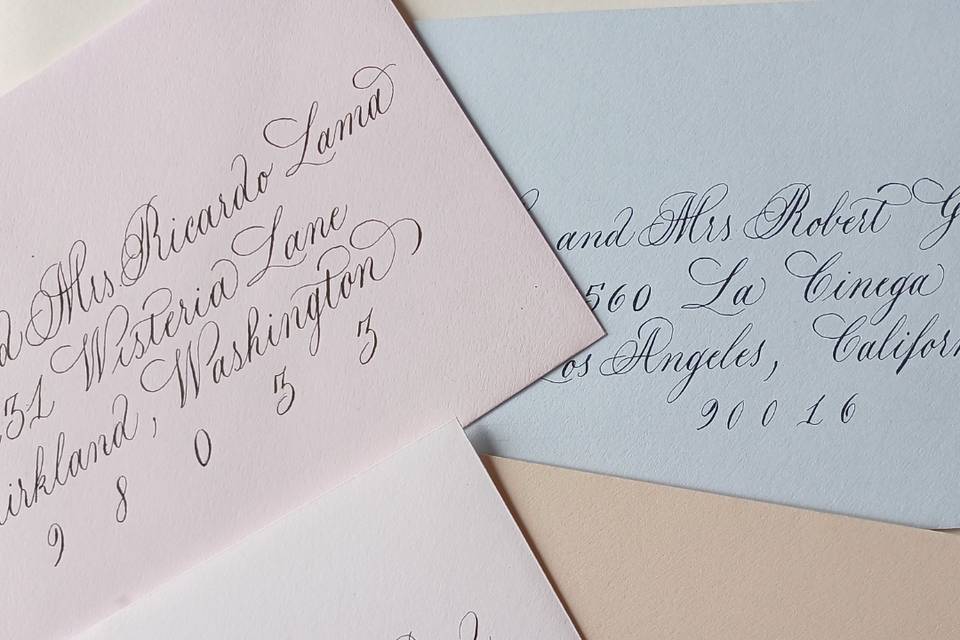 Mrs Ricardo Lama
31 Wisteria Lane
Kirkland, Washington
9 8 0 3 3
and Mrs Robert G
560 La Cinega
Los Angeles, Californ
90016